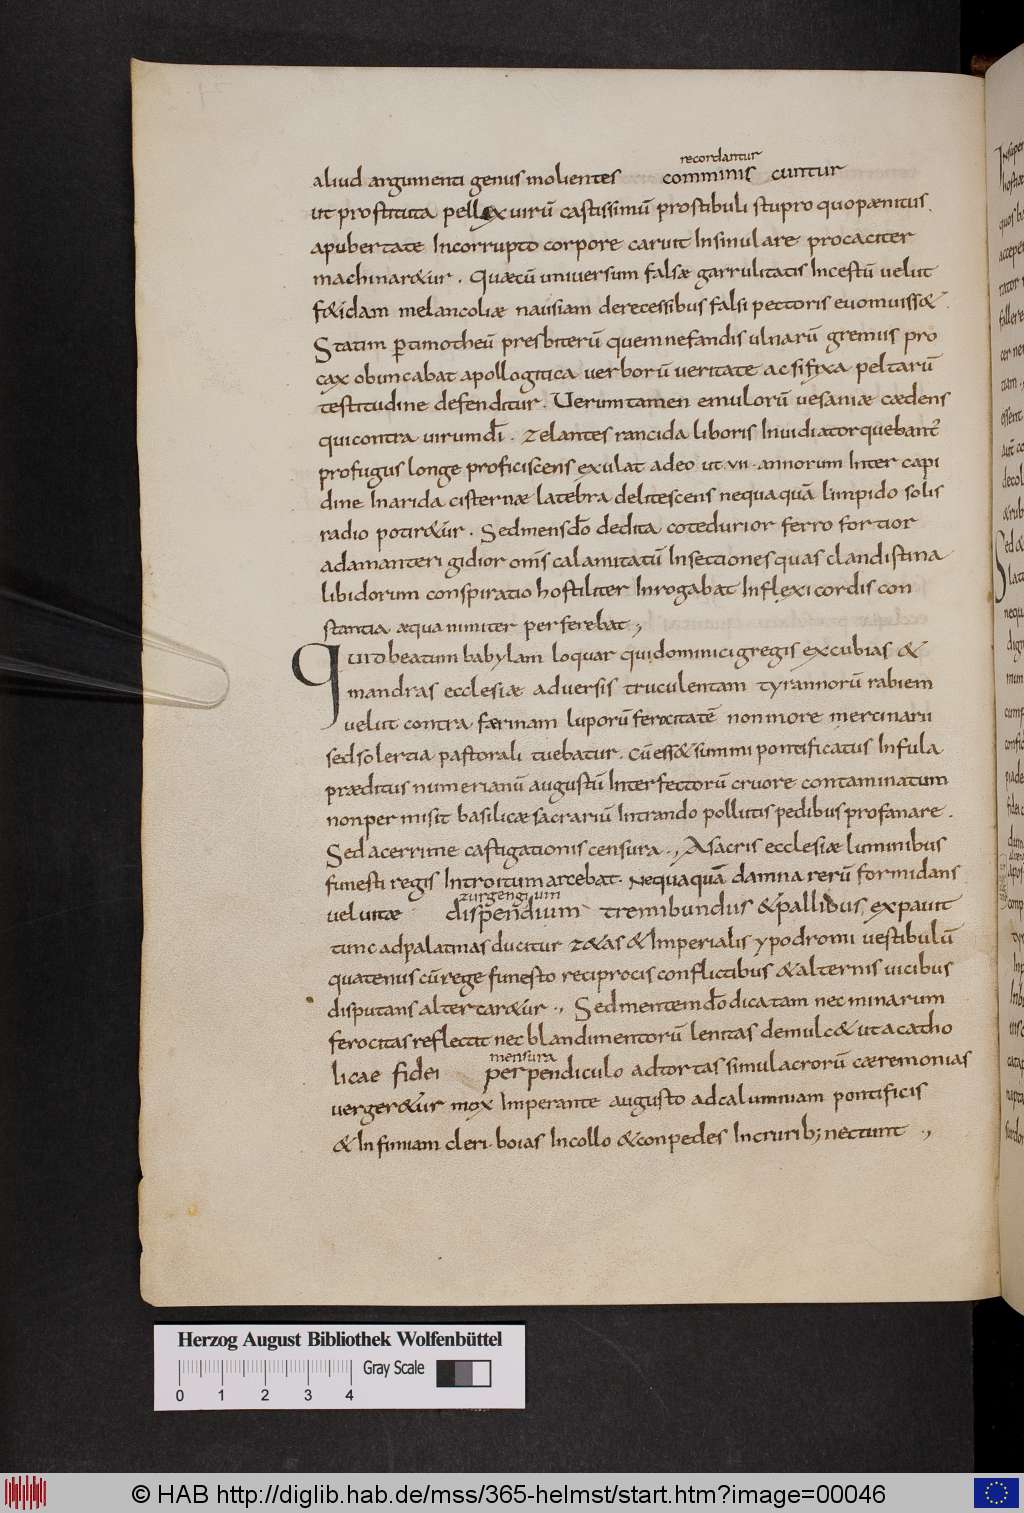 recordantur
aliud argumenti genus molientes comminis cuntur
ut prostituta pellex uirū castissimū prostibuli stupro quo pænitus
a pubertate Incorrupto corpore caruit Insimulare procaciter
machinar&ur . Quæ cū uniuersum falsæ garrulitatis Incestū uelut
f&idam melancoliæ nausiam de recessibus falsi pectoris euomuiss&
Statim p timotheū presbiterū quem nefandis ulnarū gremiis pro
cax obuncabat apollogitica uerborū ueritate ac si fixa peltarū
testitudine defenditur . Uerum tamen emulorū uesaniæ cædens
qui contra uirum dī . zelantes rancida liboris Inuidia torquebant
profugus longe proficiscens exulat adeo ut . vii . annorum Inter capi
dine In arida cisternæ latebra delitescens nequaquā limpido solis
radio potir&ur . Sed mens dō dedita cote durior ferro fortior
adamante rigidior om̄s calamitatū Insectiones quas clandistina
libidorum conspiratio hostiliter Inrogabat Inflexi cordis con
stantia æquanimiter perferebat ;
Quid beatum babylam loquar qui dominici gregis excubias &
mandras ecclesiæ aduersis truculentam tyrannorū rabiem
uelut contra færinam luporū ferocitatē non more mercinarii
sed solertia pastorali tuebatur . Cū ess& summi pontificatus Infula
præditus numerianū augustū Interfectorū cruore contaminatum
non permisit basilicæ sacrariū Intrando pollutis pedibus profanare .
Sed acerrime castigationis censura ., A sacris ecclesiæ liminibus
funesti regis Introitum arcebat . Nequaquā damna rerū formidans
zurgengi uim
uel uitæ dispendium tremibundus & pallidus expauit
tunc ad palatinas ducitur z&as & Imperialis ypodromi uestibulū
quatenus cū rege funesto reciprocis conflictibus & alternis uicibus
disputans altercar&ur ., Sed mentem dō dicatam nec minarum
ferocitas reflectit nec blandimentorū lenitas demulc& ut a catho
mensura
licae fidei perpendiculo ad tortas simulacrorū cæremonias
uerger&ur mox Imperante augusto ad calumniam pontificis
& Infimiam cleri . boias In collo & conpedes In crurib; nectunt .,
Herzog August Bibliothek Wolfenbüttel
Gray Scale
0 1 2 3 4
© HAB http://diglib.hab.de/mss/365-helmst/start.htm?image=00046